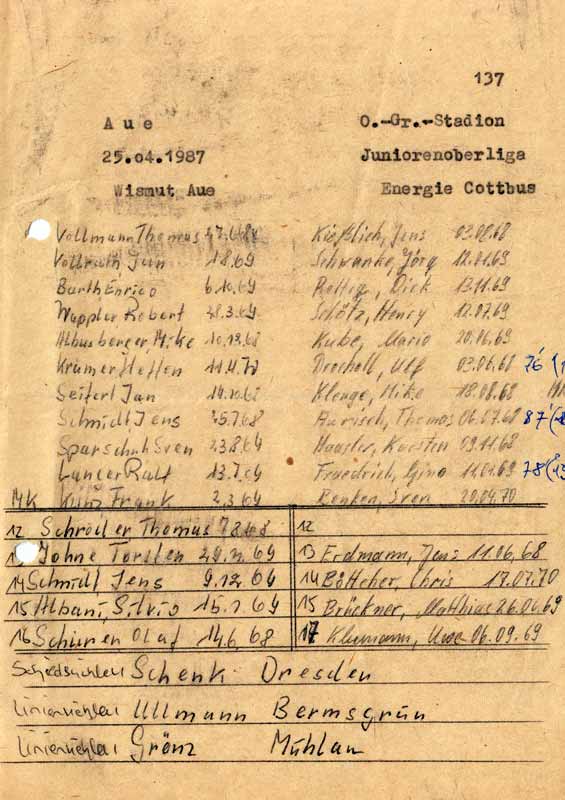 137
Aue O.-Gr.-Stadion
25.04.1987 Juniorenoberliga
Wismut Aue Energie Cottbus
Vollmann Thomas Kießlich, Jens 03.08.68
Vollrath Jan 1.8.69 Schwanke, Jörg 12.01.69
Barth Enrico 6.10.69 Rettig, Dick 13.11.69
Wappler Robert 28.3.69 Schötz, Henry 12.07.69
Albusberger, Mike 10.12.68 Kube, Mario 20.06.69
Krämer Steffen Drocholl, Ulf 03.06.68 76'
Seifert Jan 14.10.68 Klenge, Mike 18.08.68
Schmidt Jens 25.7.68 Aurisch, Thomas 06.07.68 87'
Sparschuh Sven 23.8.69 Haasler, Karsten 09.11.68
Lancer Ralf 13.7.69 Friedrich, Gino 11.01.69 78'
MK Kunz Frank 2.3.69 Benken, Sven 20.04.70
12 Schröder Thomas 7.8.68 12
13 Johne Torsten 13 Erdmann, Jens 11.06.68
14 Schmidt Jens 9.12.69 14 Böttcher, Chris 17.07.70
15 Albani, Silvio 15.1.69 15 Brückner, Matthias 26.06.69
16 Schüren Olaf 14.6.68 17 Klumann, Uwe 06.09.69
Schiedsrichter Schenk Dresden
Linienrichter Ullmann Bermsgrün
Linienrichter Gränz Mühlau